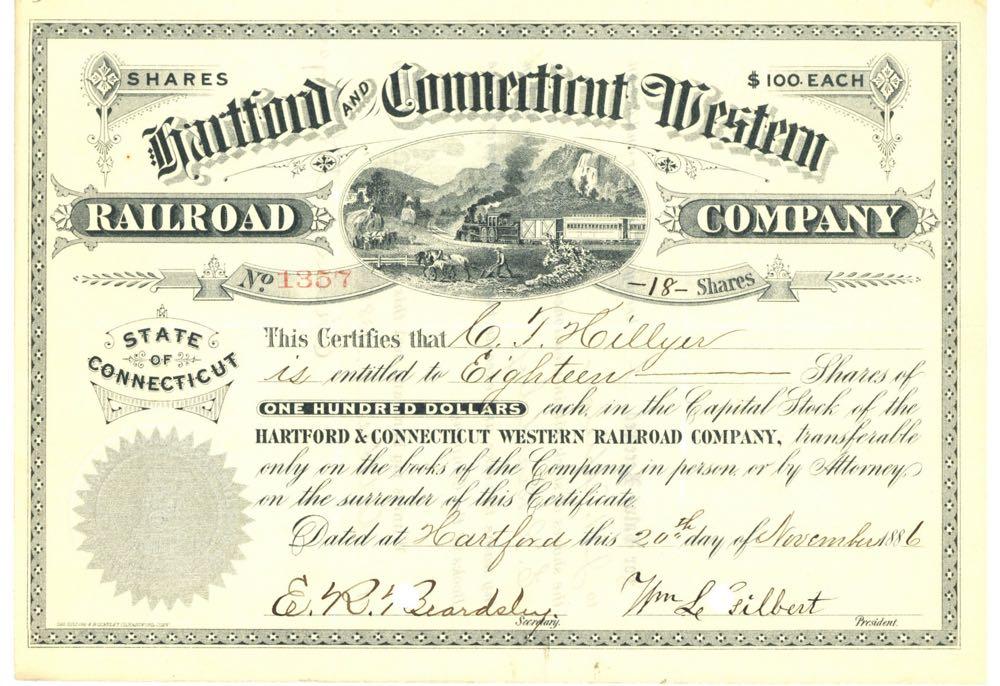 SHARES
$100. EACH
Hartford AND Connecticut Western
RAILROAD COMPANY
No 1357
-18- Shares
STATE
OF
CONNECTICUT
This Certifies that C. T. Hillyer
is entitled to Eighteen Shares of
ONE HUNDRED DOLLARS each, in the Capital Stock of the
HARTFORD & CONNECTICUT WESTERN RAILROAD COMPANY, transferable
only on the books of the Company in person, or by Attorney,
on the surrender of this Certificate.
Dated at Hartford this 20th day of November 1886
E. R. Beardsley
Wm L Gilbert
Secretary.
President.